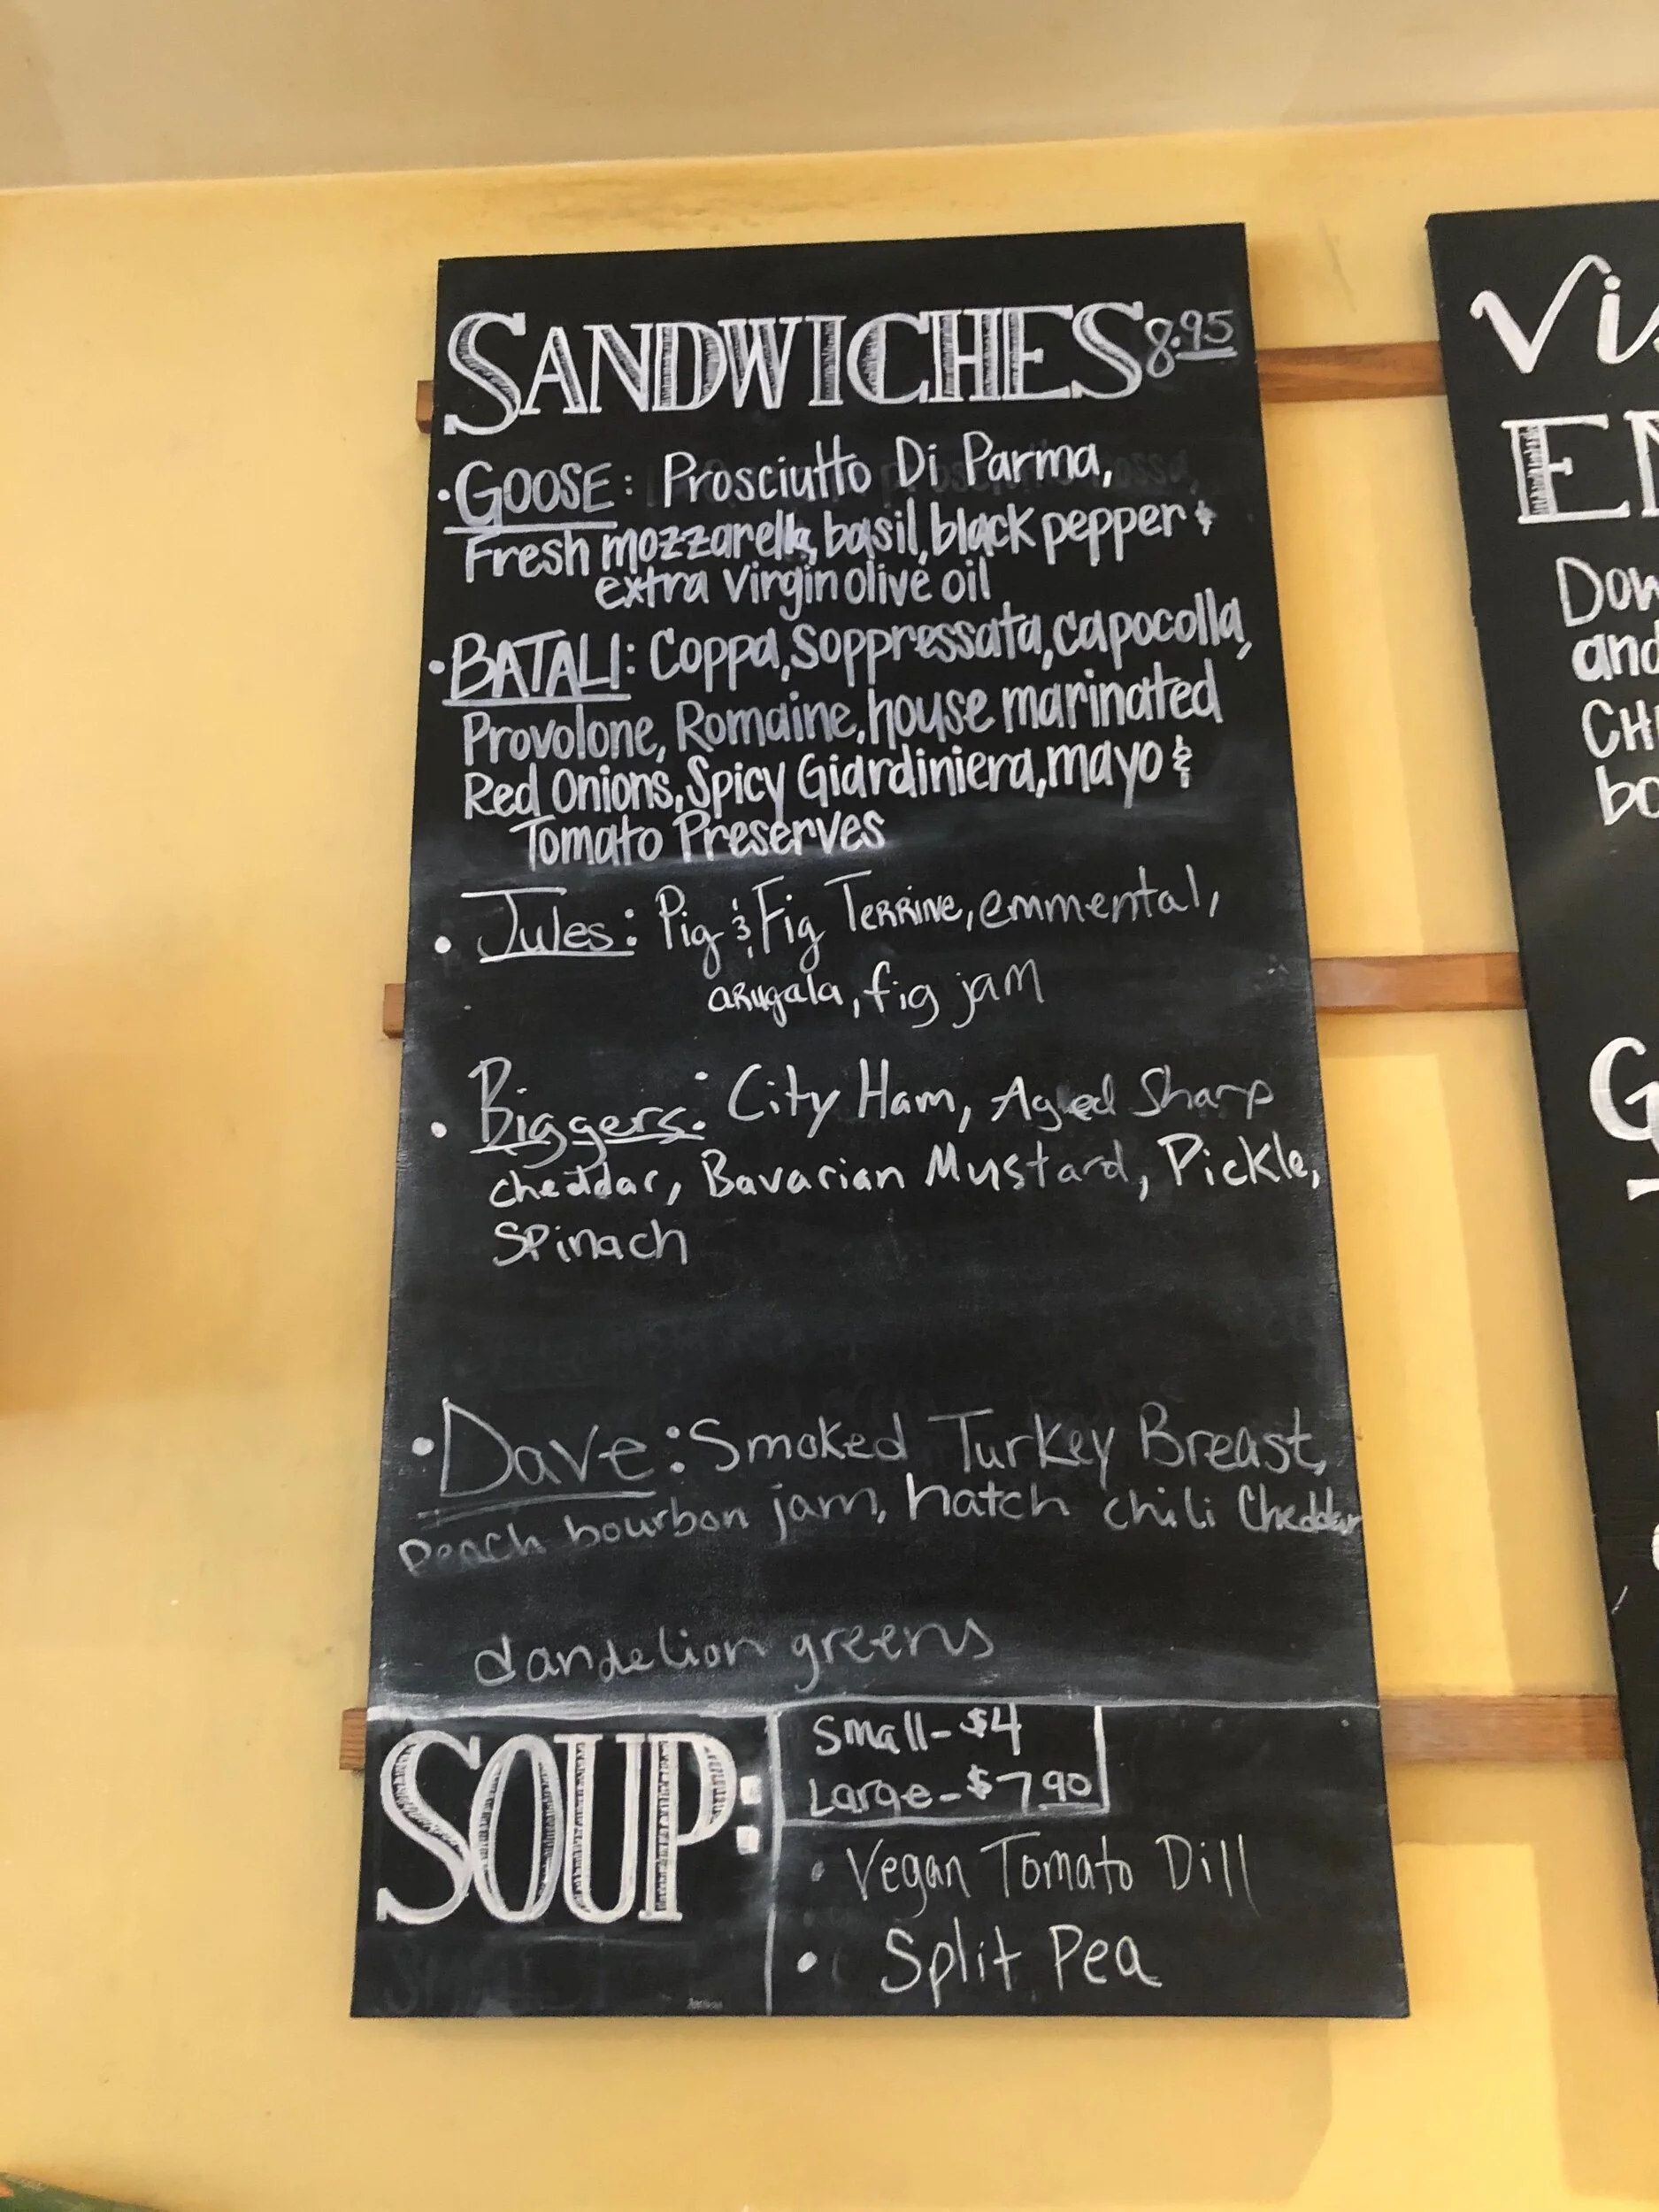 SANDWICHES 8.95
• GOOSE: Prosciutto Di Parma,
Fresh mozzarella, basil, black pepper &
extra virgin olive oil
• BATALI: Coppa, Soppressata, capocolla,
Provolone, Romaine, house marinated
Red Onions, Spicy Giardiniera, mayo &
Tomato Preserves
• Jules: Pig & Fig Terrine, emmental,
arugala, fig jam
• Biggers: City Ham, Aged Sharp
cheddar, Bavarian Mustard, Pickle,
Spinach
• Dave: Smoked Turkey Breast,
peach bourbon jam, hatch chili Cheddar
dandelion greens
SOUP:
Small - $4
Large - $7.90
• Vegan Tomato Dill
• Split Pea